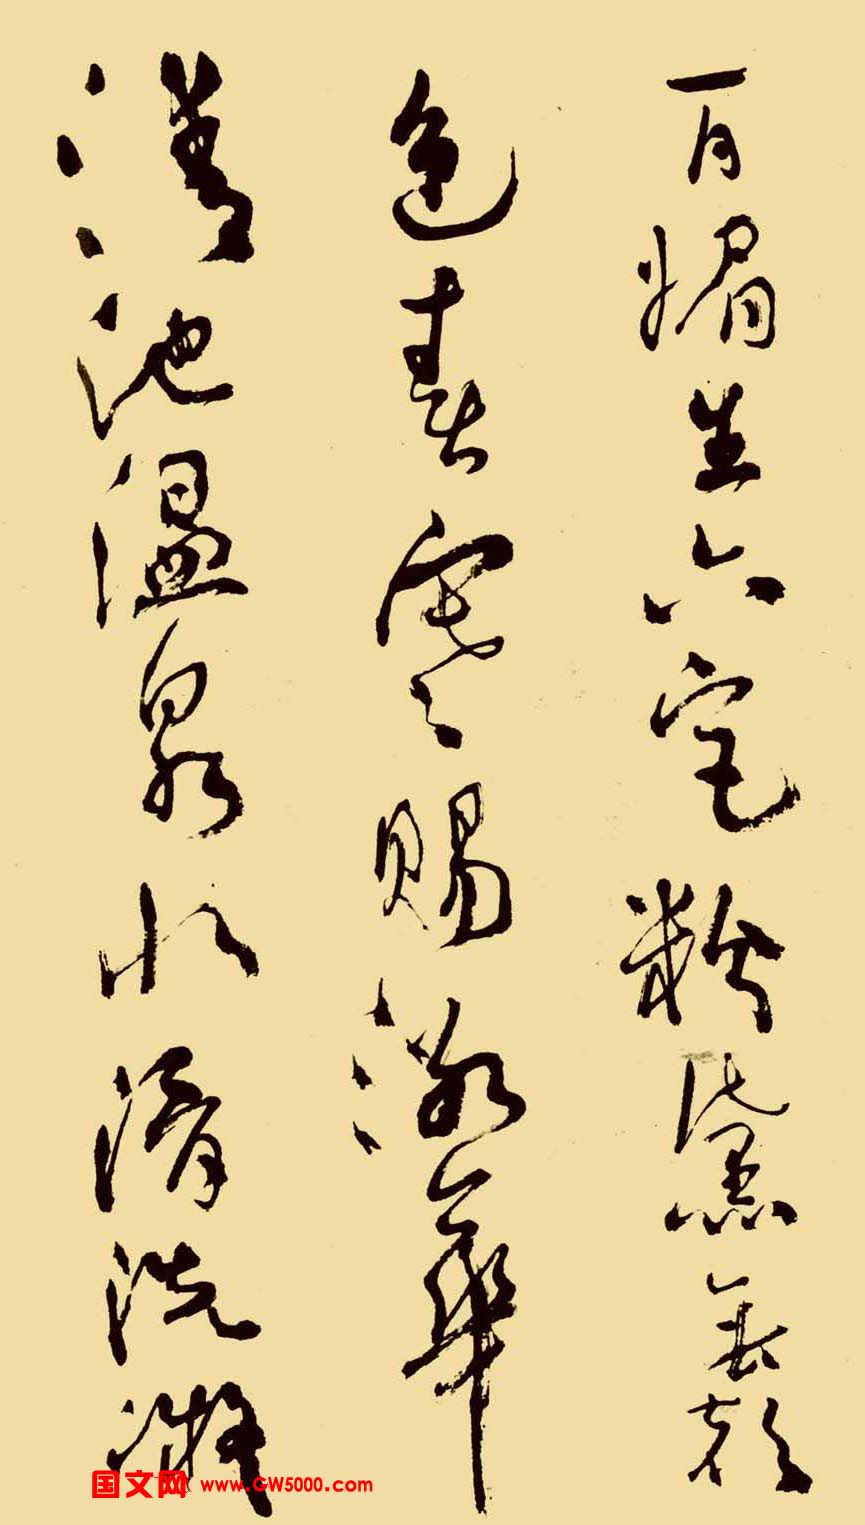 百媚生六宮粉黛無顏
色春寒賜浴華
清池温泉水滑洗凝
国文网 www.GW5000.com